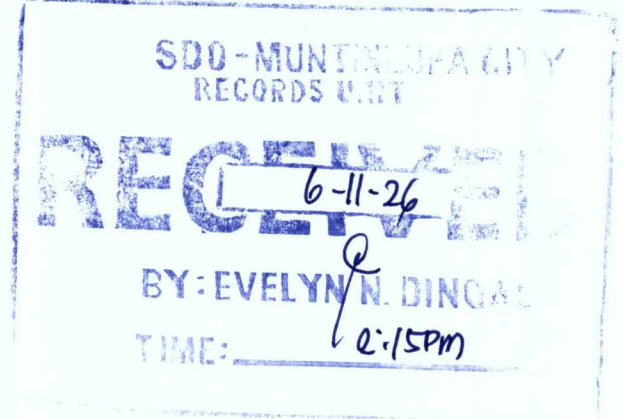 SDO-MUNTINLUPA CITY
RECORDS UNIT
RECEIVED
6-11-26
BY: EVELYN N. DINGAL
TIME: 2:15PM